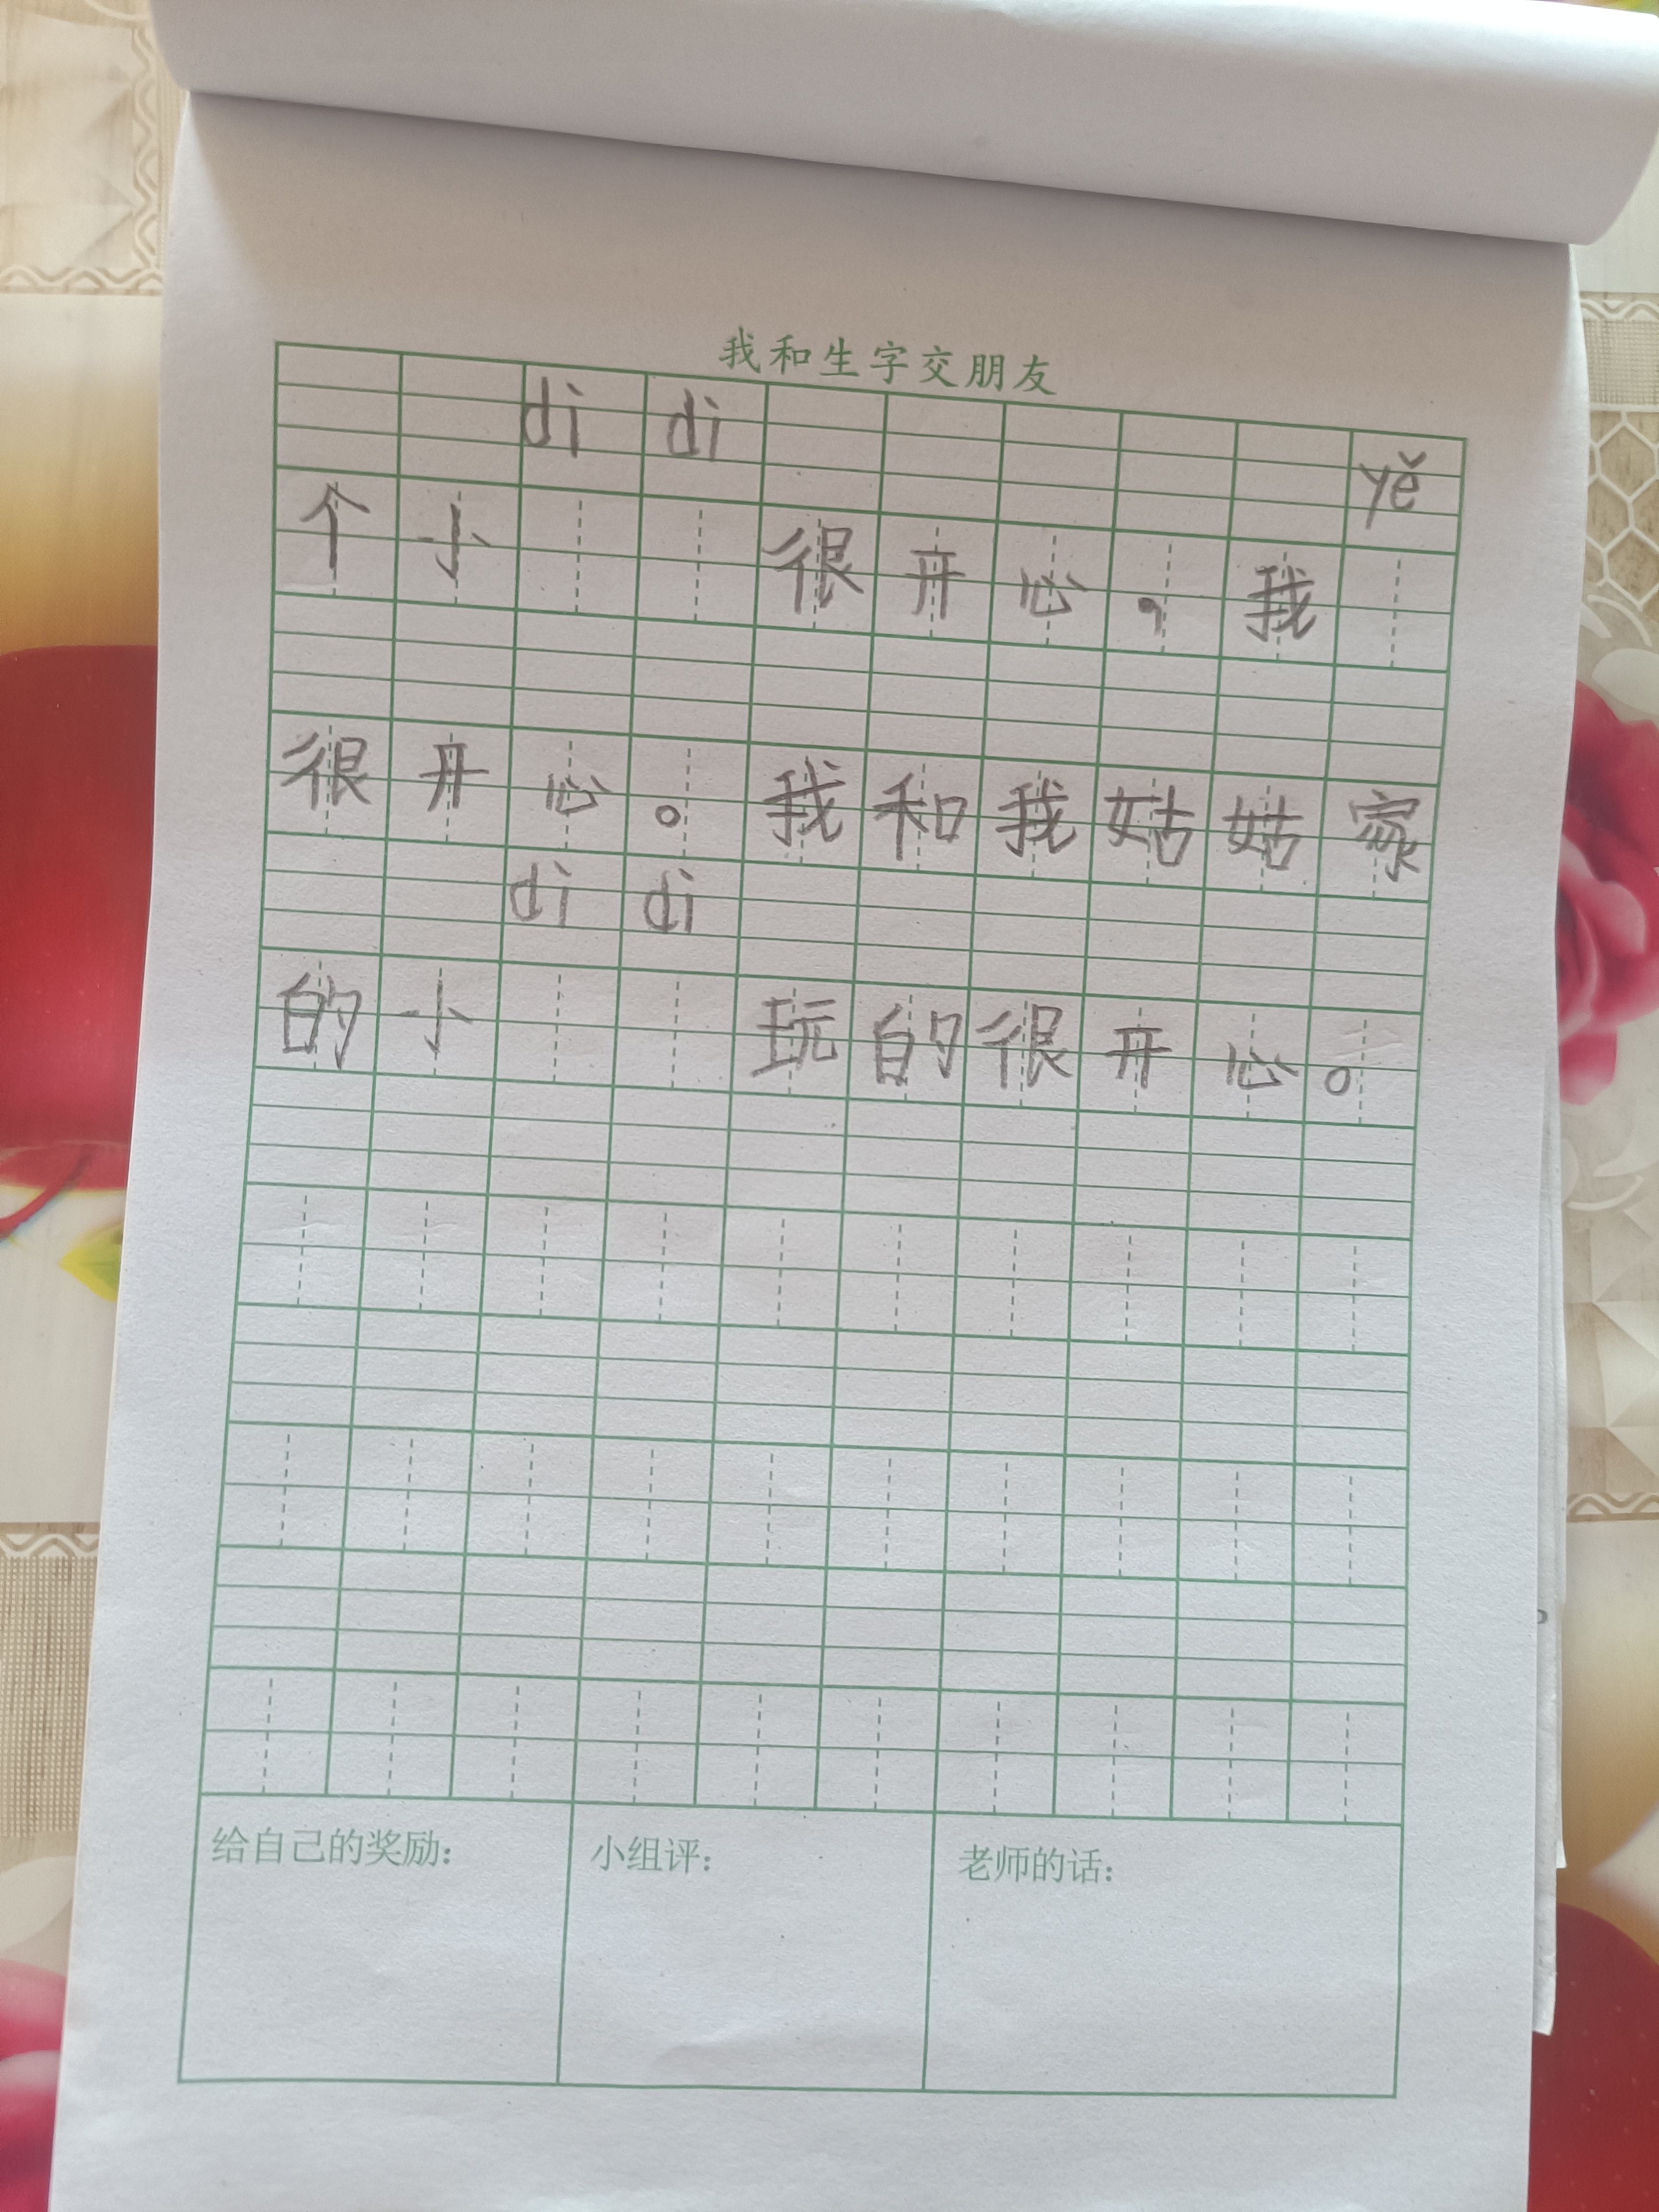 我和生字交朋友
di di yě
个小 很开心，我
很开心。我和我姑姑家
di di
的小 玩的很开心。
给自己的奖励： 小组评： 老师的话：